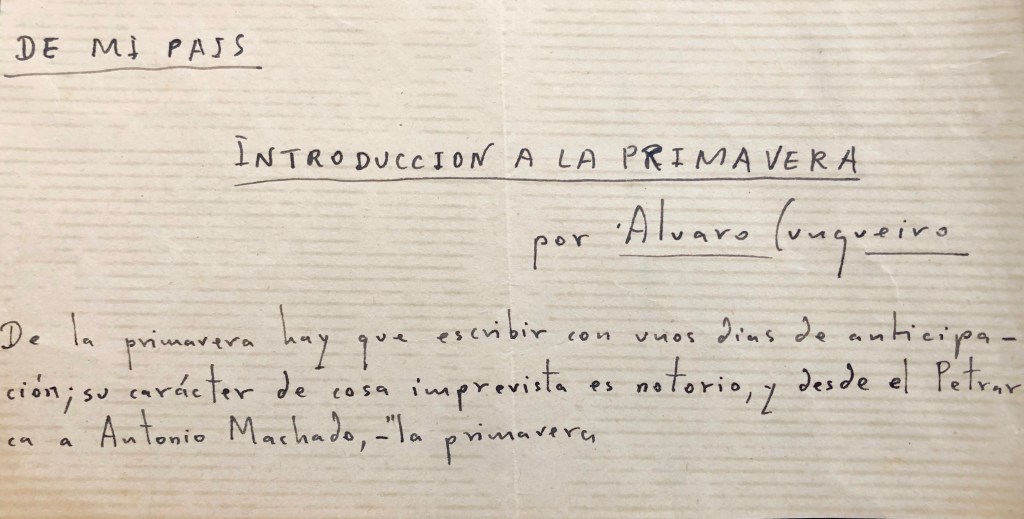 DE MI PAIS
INTRODUCCION A LA PRIMAVERA
por Alvaro Cunqueiro
De la primavera hay que escribir con unos dias de anticipa-
ción; su carácter de cosa imprevista es notorio, y desde el Petrar
ca a Antonio Machado, -"la primavera